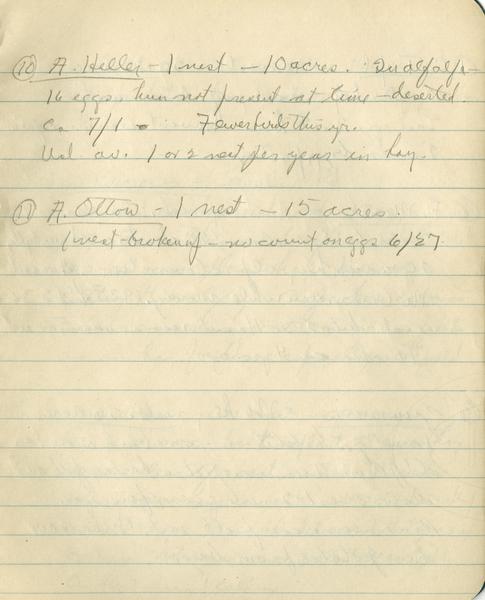 (10) A. Heller - 1 nest - 10 acres. In alfalfa -
16 eggs hen not present at time - deserted.
Ca 7/1 - Fewer birds this yr.
Usl av. 1 or 2 nest per year in hay.
(11) A. Ottow - 1 nest - 15 acres.
1 nest - broken up - no count on eggs 6/27